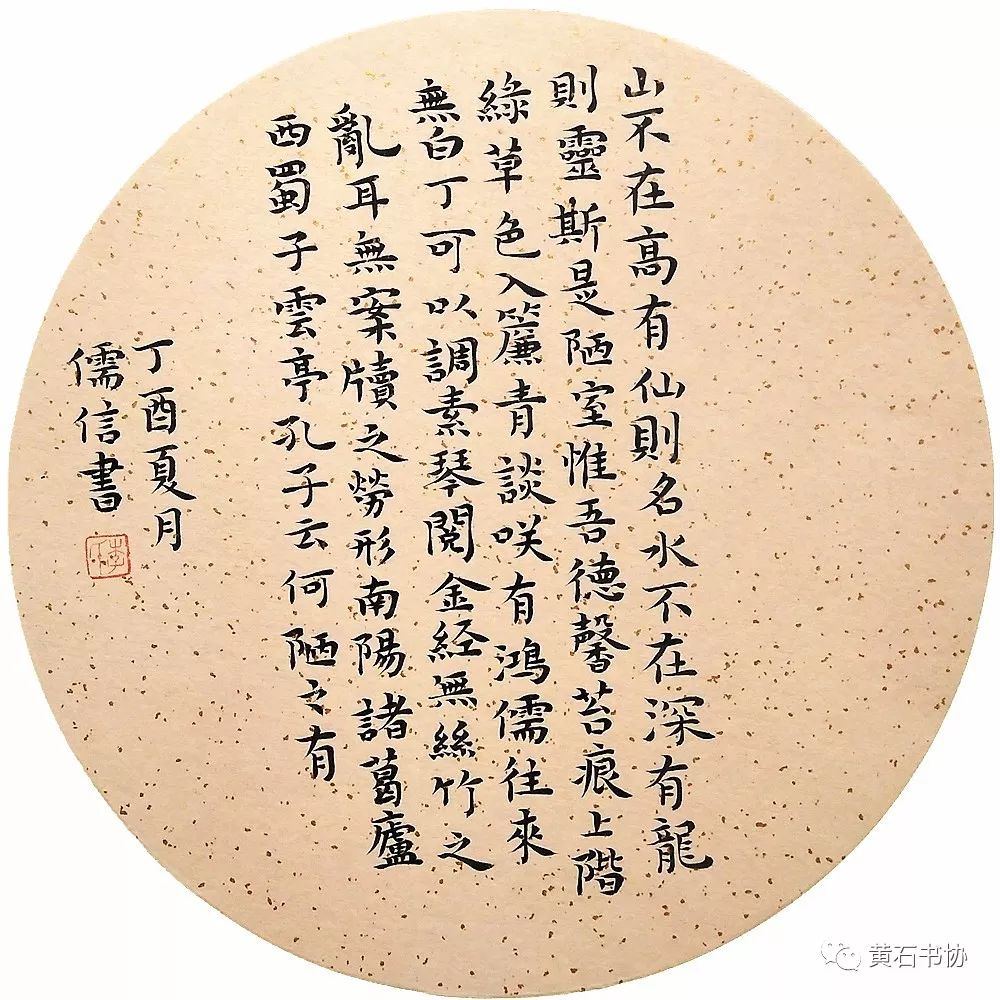 山不在高有仙則名水不在深有龍
則靈斯是陋室惟吾德馨苔痕上階
綠草色入簾青談咲有鴻儒往來
無白丁可以調素琴閱金經無絲竹之
亂耳無案牘之勞形南陽諸葛廬
西蜀子雲亭孔子云何陋之有
丁酉夏月
儒信書
黄石书协